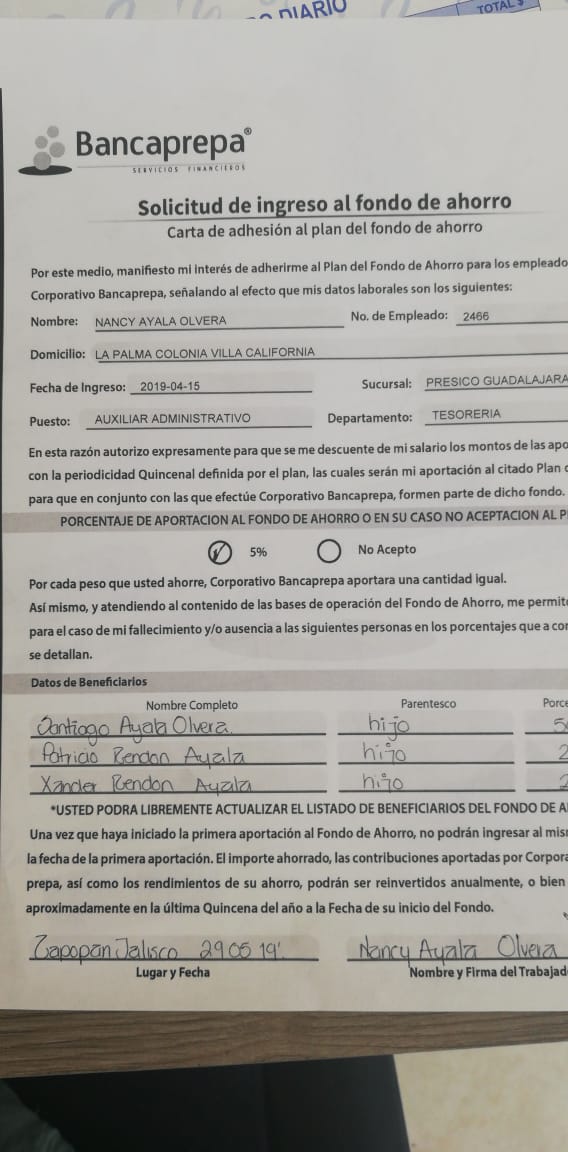 DIARIO
TOTAL $
Bancaprepa®
SERVICIOS FINANCIEROS
Solicitud de ingreso al fondo de ahorro
Carta de adhesión al plan del fondo de ahorro
Por este medio, manifiesto mi interés de adherirme al Plan del Fondo de Ahorro para los empleado
Corporativo Bancaprepa, señalando al efecto que mis datos laborales son los siguientes:
Nombre: NANCY AYALA OLVERA No. de Empleado: 2466
Domicilio: LA PALMA COLONIA VILLA CALIFORNIA
Fecha de Ingreso: 2019-04-15 Sucursal: PRESICO GUADALAJARA
Puesto: AUXILIAR ADMINISTRATIVO Departamento: TESORERIA
En esta razón autorizo expresamente para que se me descuente de mi salario los montos de las apo
con la periodicidad Quincenal definida por el plan, las cuales serán mi aportación al citado Plan
para que en conjunto con las que efectúe Corporativo Bancaprepa, formen parte de dicho fondo.
PORCENTAJE DE APORTACION AL FONDO DE AHORRO O EN SU CASO NO ACEPTACION AL P
5% No Acepto
Por cada peso que usted ahorre, Corporativo Bancaprepa aportara una cantidad igual.
Así mismo, y atendiendo al contenido de las bases de operación del Fondo de Ahorro, me permit
para el caso de mi fallecimiento y/o ausencia a las siguientes personas en los porcentajes que a con
se detallan.
Datos de Beneficiarios
Nombre Completo Parentesco Porce
Santiago Ayala Olvera. hijo 5
Patricio Rendon Ayala hijo 2
Xander Rendon Ayala hijo 2
*USTED PODRA LIBREMENTE ACTUALIZAR EL LISTADO DE BENEFICIARIOS DEL FONDO DE A
Una vez que haya iniciado la primera aportación al Fondo de Ahorro, no podrán ingresar al mis
la fecha de la primera aportación. El importe ahorrado, las contribuciones aportadas por Corpora
prepa, así como los rendimientos de su ahorro, podrán ser reinvertidos anualmente, o bien
aproximadamente en la última Quincena del año a la Fecha de su inicio del Fondo.
Zapopan Jalisco 29 05 19' Nancy Ayala Olvera
Lugar y Fecha Nombre y Firma del Trabajad